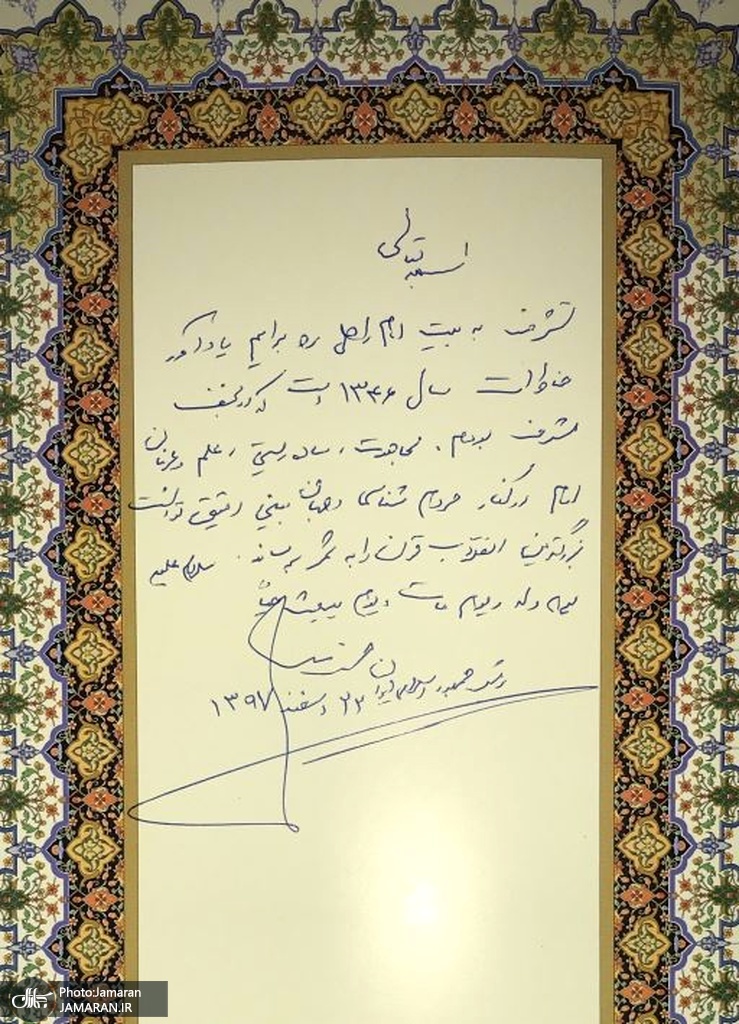 بسمه تعالی
تشرف به بیت امام راحل ره برایم یادآور
خاطرات سال ۱۳۴۶ است که در نجف
مشرف بودم. مجاهدت، ساده زیستی، علم و عرفان
امام در کنار مردم شناسی و جهان بینی دقیق توانست
بزرگترین انقلاب قرن را به ثمر برساند. سلام علیه
یوم ولد و یوم مات و یوم یبعث حیاً
حسن
رئیس جمهوری اسلامی ایران
۲۲ اسفند ۱۳۹۷
جماران
Photo:Jamaran
JAMARAN.IR